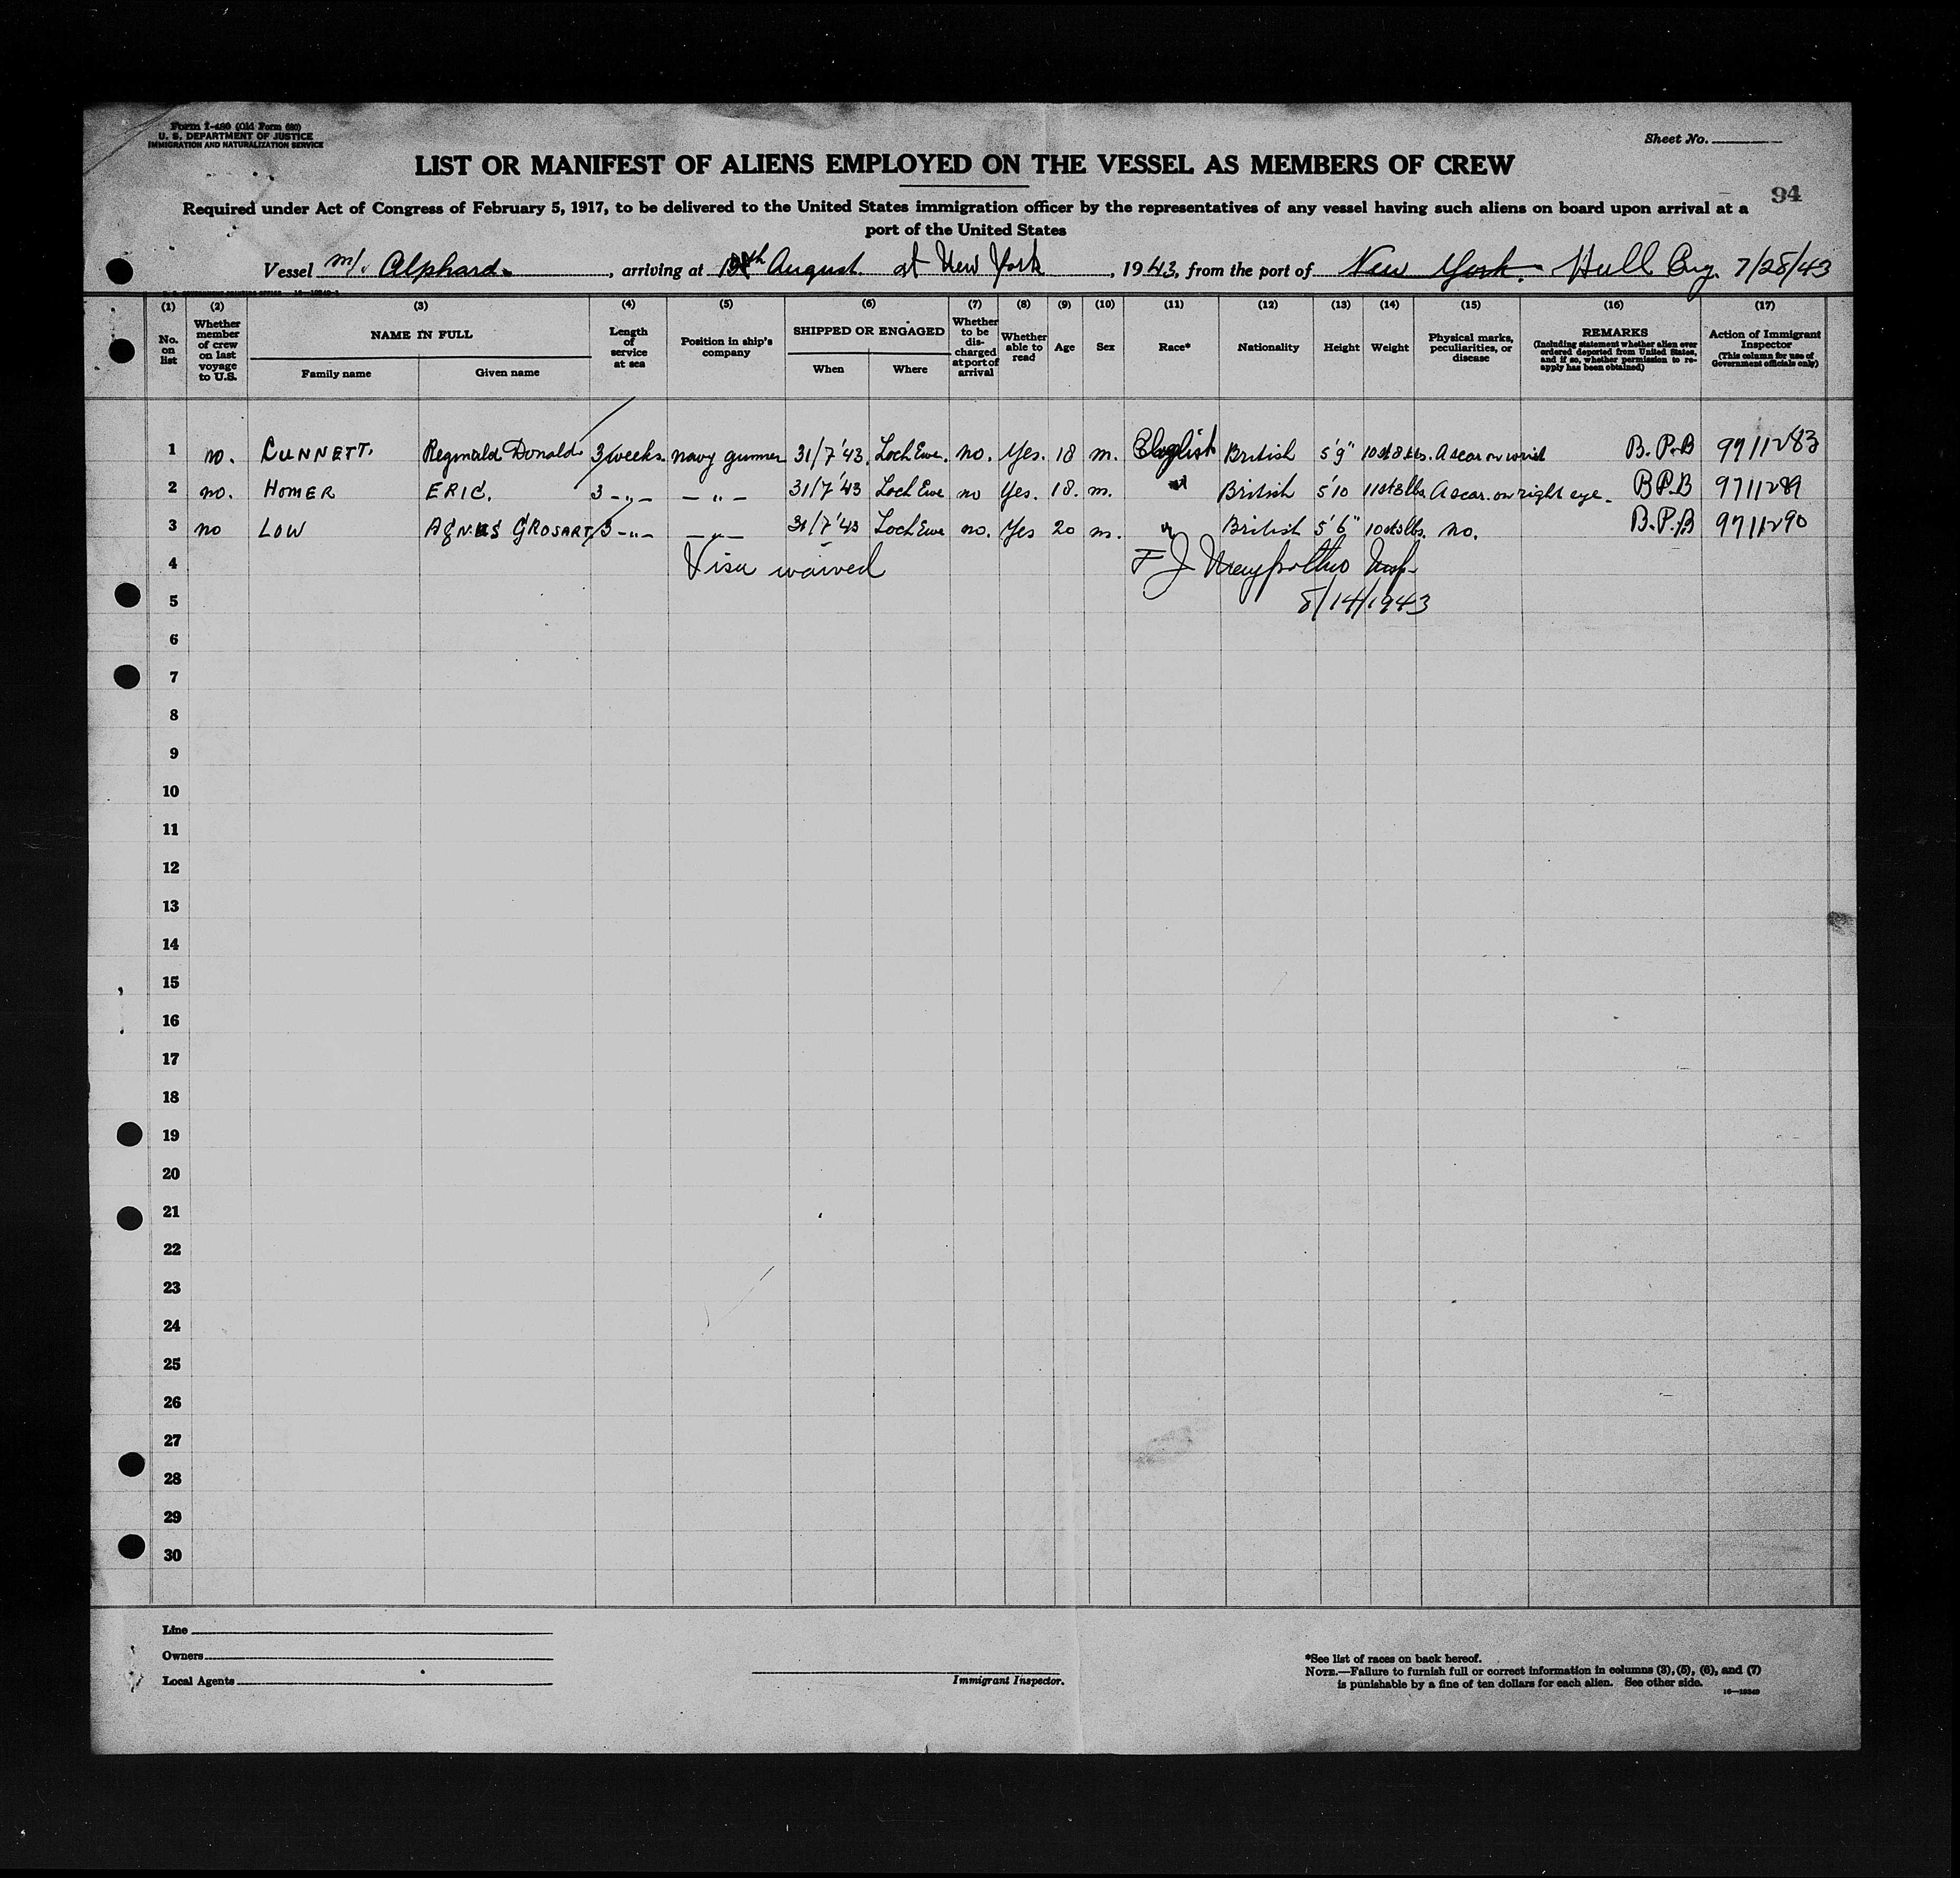 Form I-480 (Old Form 680)
U. S. DEPARTMENT OF JUSTICE
IMMIGRATION AND NATURALIZATION SERVICE
Sheet No.
LIST OR MANIFEST OF ALIENS EMPLOYED ON THE VESSEL AS MEMBERS OF CREW
94
Required under Act of Congress of February 5, 1917, to be delivered to the United States immigration officer by the representatives of any vessel having such aliens on board upon arrival at a
port of the United States
Vessel Alphard, arriving at August at New York, 1943, from the port of New York. Hull Eng. 7/28/43
(1) (2) (3) (4) (5) (6) (7) (8) (9) (10) (11) (12) (13) (14) (15) (16) (17)
No. on list
Whether member of crew on last voyage to U.S.
NAME IN FULL
Family name Given name
Length of service at sea
Position in ship's company
SHIPPED OR ENGAGED
When Where
Whether to be discharged at port of arrival
Whether able to read
Age
Sex
Race*
Nationality
Height
Weight
Physical marks, peculiarities, or disease
REMARKS
(Including statement whether alien ever ordered deported from United States, and if so, whether permission to re-apply has been obtained)
Action of Immigrant Inspector
(This column for use of Government officials only)
1 no. CUNNETT. Reginald Donald 3 weeks. navy gunner 31/7'43. Loch Ewe. no. Yes. 18 m. English British 5'9" 10st 8 lbs. A scar on wrist B.P.B 9711283
2 no. HOMER ERIC. 3 -"- -"- 31/7'43 Loch Ewe no Yes. 18. m. " British 5'10 11st 3 lbs. A scar. on right eye. B.P.B 9711289
3 no LOW AGNUS GROSART 3 -"- -"- 31/7'43 Loch Ewe no. Yes 20 m. " British 5'6" 10st 3 lbs. no. B.P.B 9711290
4 Visa waived F J
5 8/14/1943
6
7
8
9
10
11
12
13
14
15
16
17
18
19
20
21
22
23
24
25
26
27
28
29
30
Line
Owners
Local Agents
Immigrant Inspector.
*See list of races on back hereof.
NOTE.—Failure to furnish full or correct information in columns (3), (5), (6), and (7)
is punishable by a fine of ten dollars for each alien. See other side.